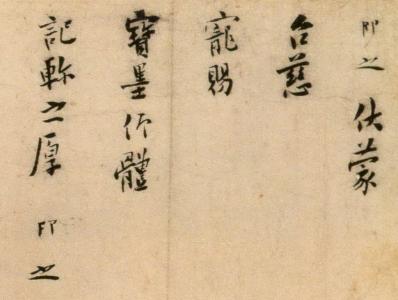 即之伏蒙
台慈
寵賜
寶墨仰體
記軫之厚即之